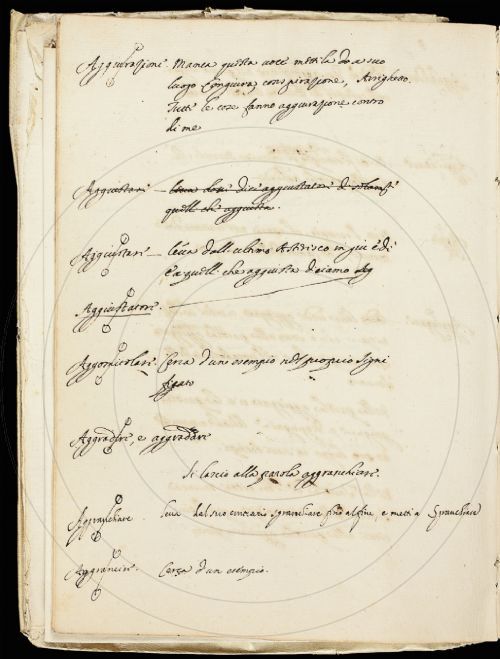 Aggiurazione Manca questa voce mettila do a suo
luogo Congiura, conspirazione, Arrighetto.
Tutte le cose fanno aggiurazione contro
di me
Aggiustare — leva dove dici aggiustatore di solamte
quello che aggiusta.
Aggiustare — leva dall' ultimo Asterisco in giù è di
e a quello che aggiusta diciamo Ag
Aggiustatore.
Aggomicolare. Cerca d'uno esempio nel proprio signi
ficato
Aggradire, e aggradare
Si lascio alla parola aggranchiare.
Aggranchiare leva dal suo contrario sgranchiare fino al fine, e metti a Sgranchiare
Aggrancire. Cerca d'un esempio.